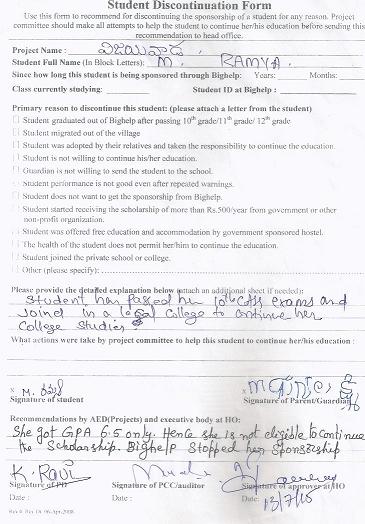 Student Discontinuation Form
Use this form to recommend for discontinuing the sponsorship of a student for any reason. Project
committee should make all attempts to help the student to continue her/his education before sending this
recommendation to head office.
Project Name : విజయవాడ
Student Full Name (In Block Letters): M. RAMYA
Since how long this student is being sponsored through Bighelp: Years: Months:
Class currently studying: Student ID at Bighelp :
Primary reason to discontinue this student: (please attach a letter from the student)
Student graduated out of Bighelp after passing 10th grade/11th grade/ 12th grade
Student migrated out of the village
Student was adopted by their relatives and taken the responsibility to continue the education.
Student is not willing to continue his/her education.
Guardian is not willing to send the student to the school.
Student performance is not good even after repeated warnings.
Student does not want to get the sponsorship from Bighelp.
Student started receiving the scholarship of more than Rs.500/year from government or other
non-profit organization.
Student was offered free education and accommodation by government sponsored hostel.
The health of the student does not permit her/him to continue the education.
Student joined the private school or college.
Other (please specify):
Please provide the detailed explanation below (attach an additional sheet if needed):
Student has passed her 10th class exams and
joined in a local college to continue her
college studies.
What actions were take by project committee to help this student to continue her/his education :
x M.
Signature of student Signature of Parent/Guardian
Recommendations by AED(Projects) and executive body at HO:
She got GPA 6.5 only. Hence she is not eligible to continue
the Scholarship. Bighelp stopped her Sponsorship
K. Ravi
Signature of PD Signature of PCC/auditor Signature of approver at HO
Date : Date : Date: 13/7/15